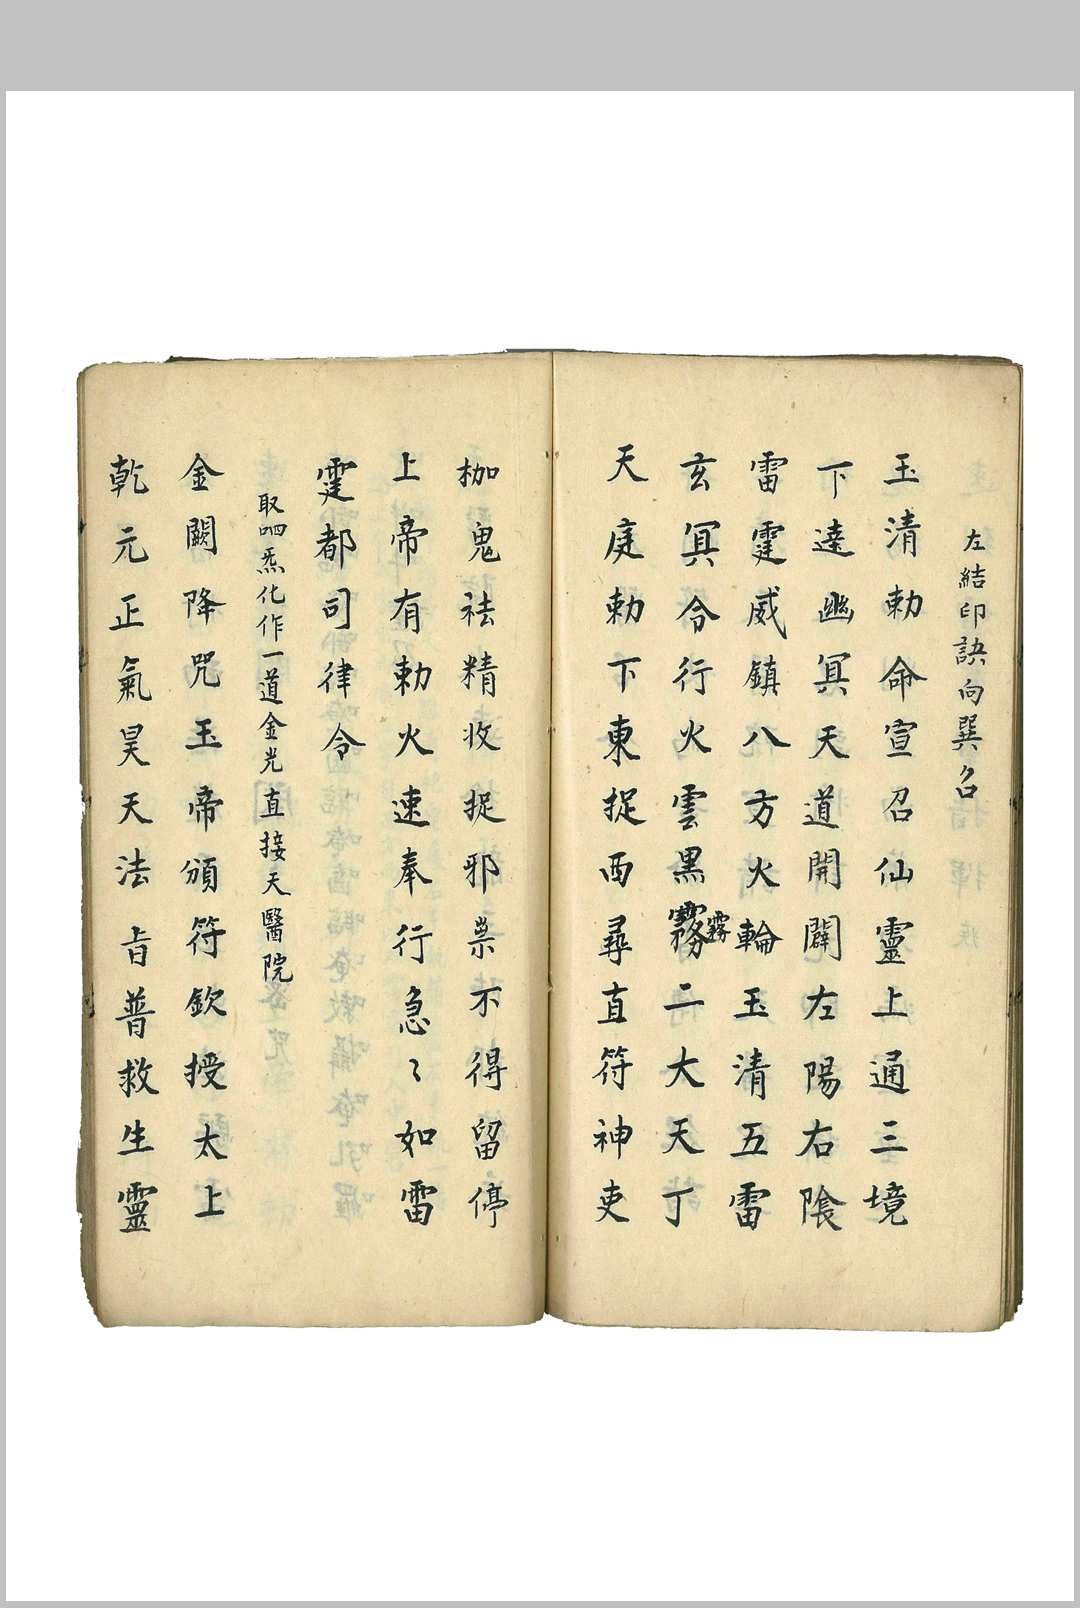 左結印訣向巽召
玉清勅命宣召仙靈上通三境
下達幽冥天道開闢左陽右陰
雷霆威鎮八方火輪玉清五雷
玄冥令行火雲黒霧霧二大天丁
天庭勅下東捉西尋直符神吏
枷鬼祛精收捉邪祟不得留停
上帝有勅火速奉行急〻如雷
霆都司律令
取呬炁化作一道金光直接天醫院
金闕降咒玉帝頒符欽授太上
乾元正氣昊天法旨普救生靈